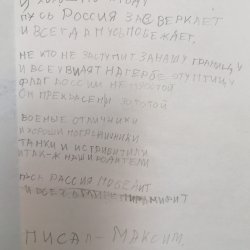 ПУСЬ РОССИЯ ЗАСВЕРКАЕТ
И ВСЕГДА ПУСЬ ПОБЕЖДАЕТ.
НЕ КТО НЕ ЗАСТУПИТ ЗА НАШУ ГРАНИЦУ
И ВСЕ УВИДЯТ НА ГЕРБЕ ОТУ ПТИЦУ
ФЛАГ РОССИИ НЕ ПРОСТОЙ
ОН ПРЕКРАСЕН И ЗОЛОТОЙ
ВОЕНЫЕ ОТЛИЧНИКИ
И ХОРОШИ ПОГРАНИЧНИКИ
ТАНКИ И ИСТРИБИТИЛИ
И ТАК-Ж НАШИ РОДИТЕЛИ
ПУСЬ РАССИЯ ПОБЕДИТ
И ВСЕХ В МИРЕ
ПИСАЛ - МАКСИМ.